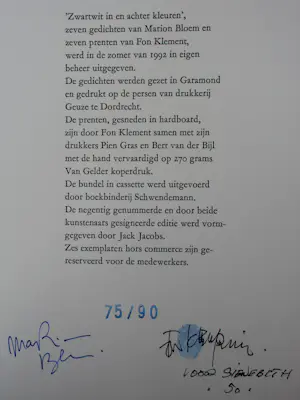 'Zwartwit in en achter kleuren',
zeven gedichten van Marion Bloem en
zeven prenten van Fon Klement,
werd in de zomer van 1992 in eigen
beheer uitgegeven.
De gedichten werden gezet in Garamond
en gedrukt op de persen van drukkerij
Geuze te Dordrecht.
De prenten, gesneden in hardboard,
zijn door Fon Klement samen met zijn
drukkers Pien Gras en Bert van der Bijl
met de hand vervaardigd op 270 grams
Van Gelder koperdruk.
De bundel in cassette werd uitgevoerd
door boekbinderij Schwendemann.
De negentig genummerde en door beide
kunstenaars gesigneerde editie werd vorm-
gegeven door Jack Jacobs.
Zes exemplaren hors commerce zijn ge-
reserveerd voor de medewerkers.
75/90
VOOR